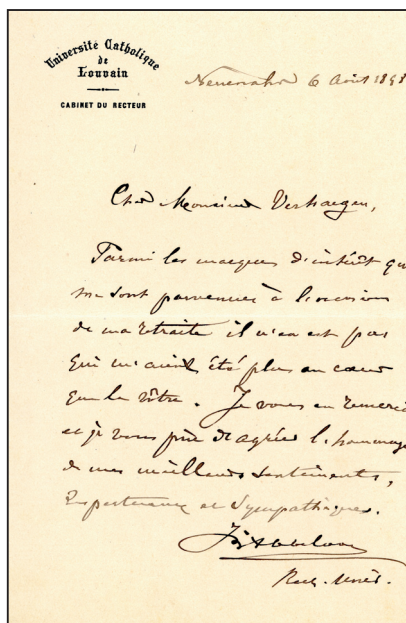 Université Catholique
de
Louvain
CABINET DU RECTEUR
6 Août 1898
Cher Monsieur Verhaegen,
Parmi les marques d'intérêt qui
me sont parvenues à l'occasion
de ma retraite il n'en est pas
qui m'aient été plus au cœur
que la vôtre. Je vous en remercie
et je vous prie d'agréer l'hommage
de mes meilleurs sentiments,
respectueux et sympathiques.